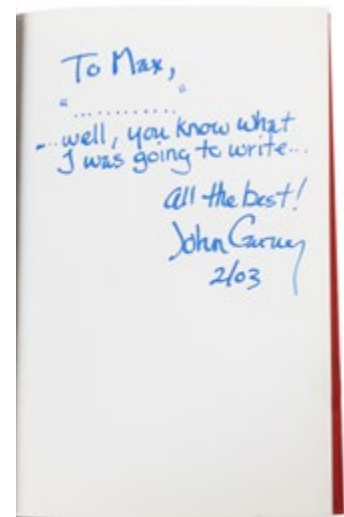 To Max,
" ............ "
...well, you know what
I was going to write...
All the best!
John Gurney
2/03